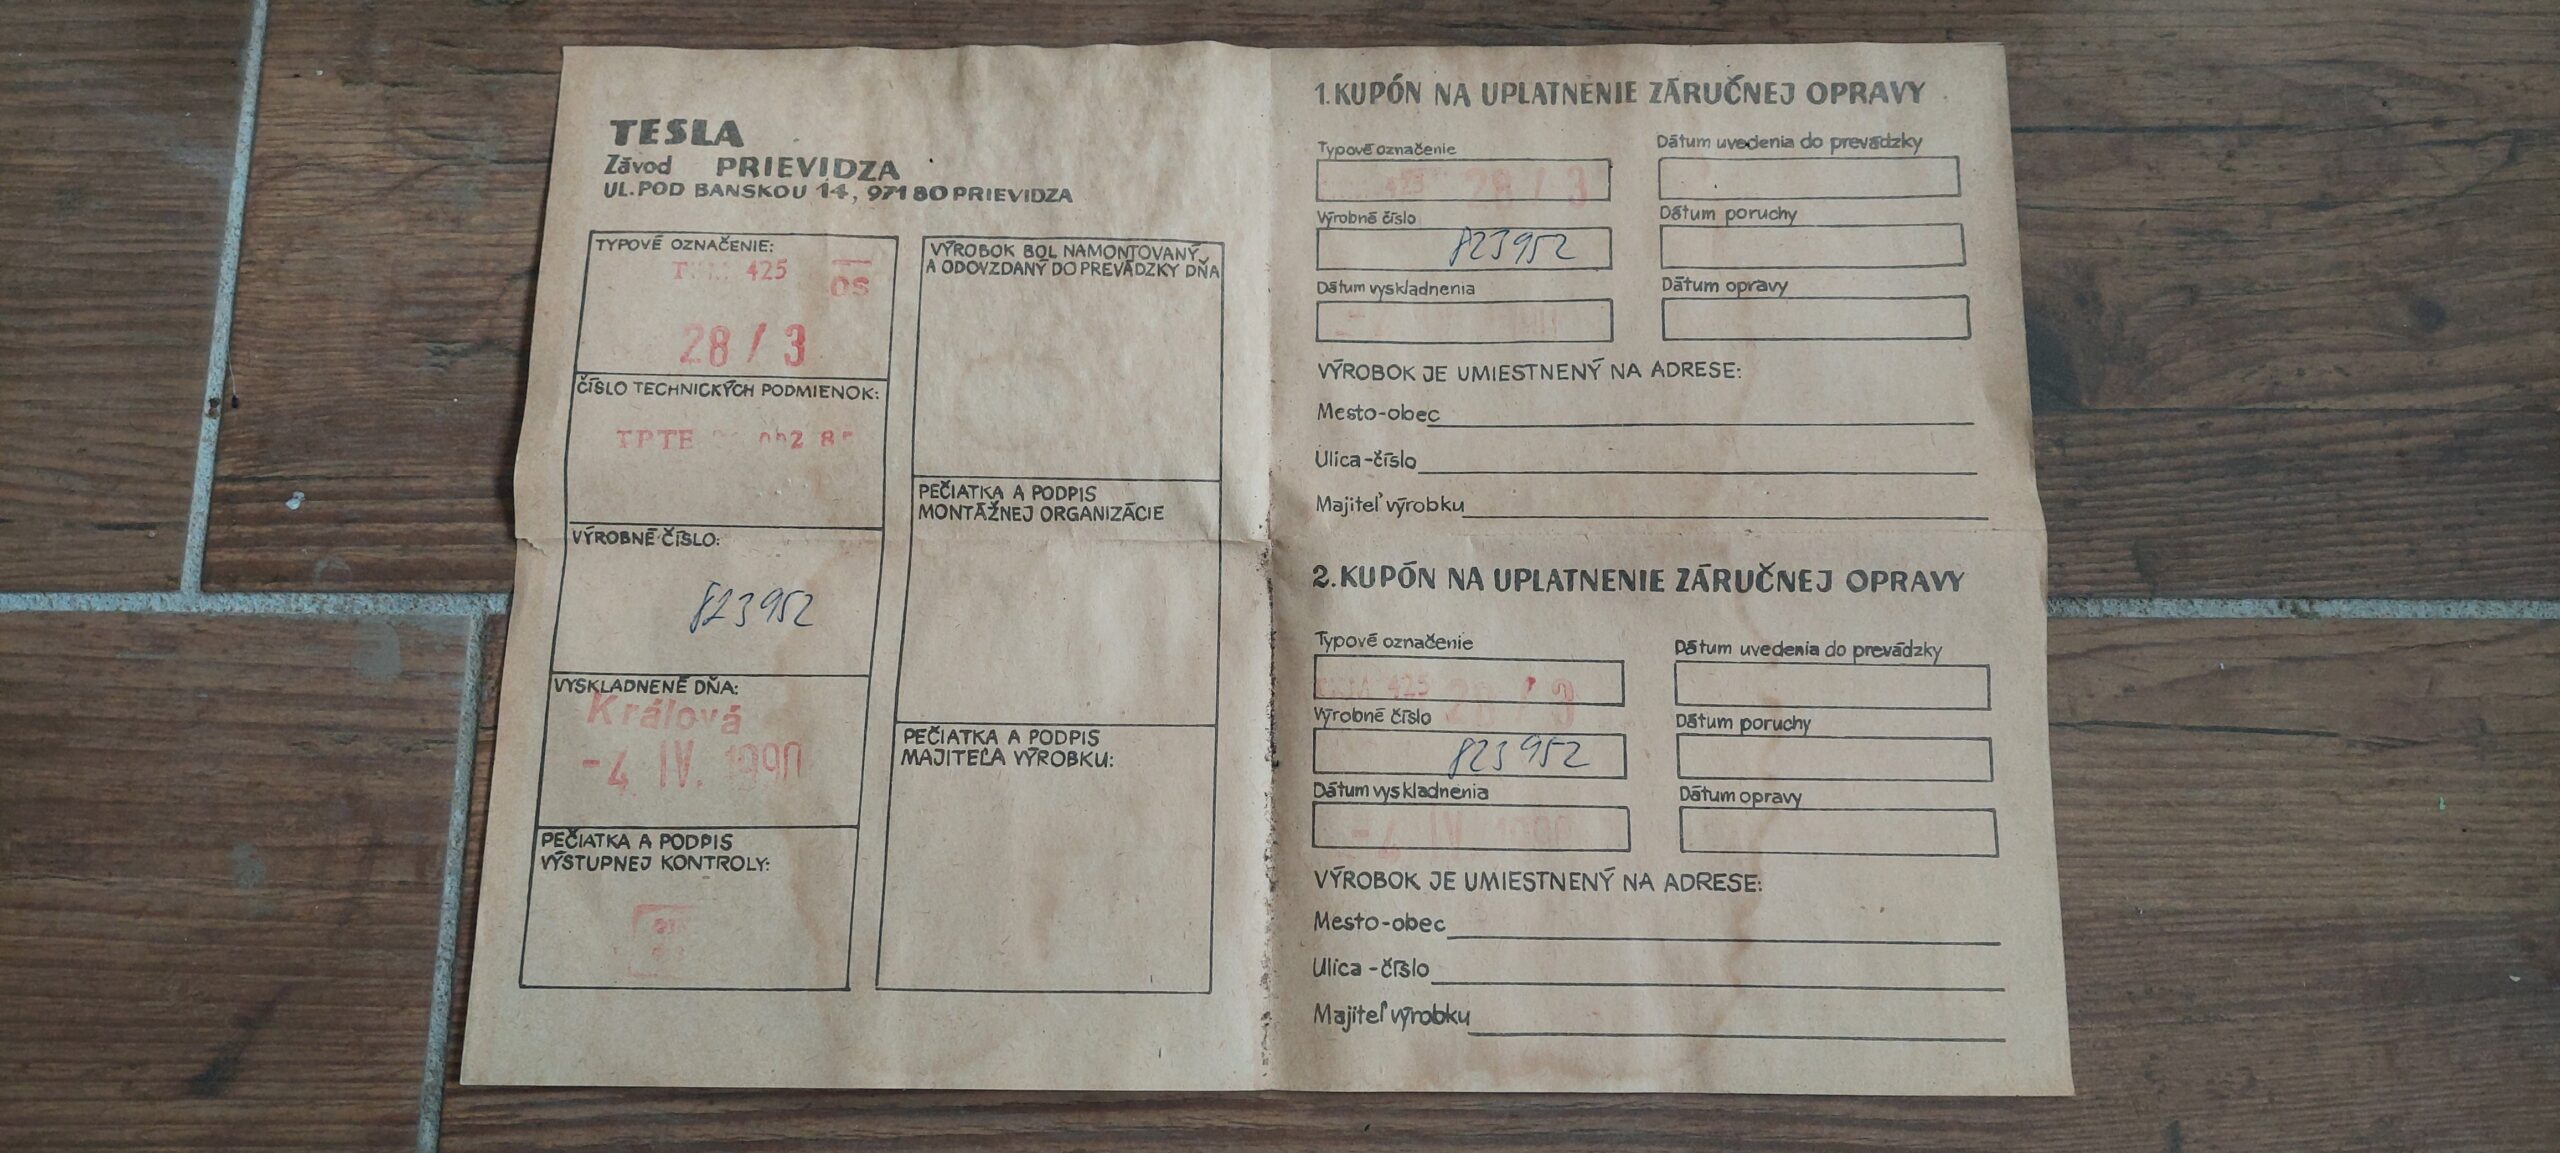 TESLA
Závod PRIEVIDZA
UL. POD BANSKOU 14, 971 80 PRIEVIDZA
TYPOVÉ OZNAČENIE:
425
OS
28 / 3
ČÍSLO TECHNICKÝCH PODMIENOK:
TPTE
VÝROBNÉ ČÍSLO:
823952
VYSKLADNENÉ DŇA:
Králová
-4. IV. 1990
PEČIATKA A PODPIS
VÝSTUPNEJ KONTROLY:
VÝROBOK BOL NAMONTOVANÝ
A ODOVZDANÝ DO PREVÁDZKY DŇA
PEČIATKA A PODPIS
MONTÁŽNEJ ORGANIZÁCIE
PEČIATKA A PODPIS
MAJITEĽA VÝROBKU:
1. KUPÓN NA UPLATNENIE ZÁRUČNEJ OPRAVY
Typové označenie
425 28 / 3
Výrobné číslo
823952
Dátum vyskladnenia
Dátum uvedenia do prevádzky
Dátum poruchy
Dátum opravy
VÝROBOK JE UMIESTNENÝ NA ADRESE:
Mesto-obec
Ulica-číslo
Majiteľ výrobku
2. KUPÓN NA UPLATNENIE ZÁRUČNEJ OPRAVY
Typové označenie
425 28 / 3
Výrobné číslo
823952
Dátum vyskladnenia
-4 IV. 1990
Dátum uvedenia do prevádzky
Dátum poruchy
Dátum opravy
VÝROBOK JE UMIESTNENÝ NA ADRESE:
Mesto-obec
Ulica-číslo
Majiteľ výrobku